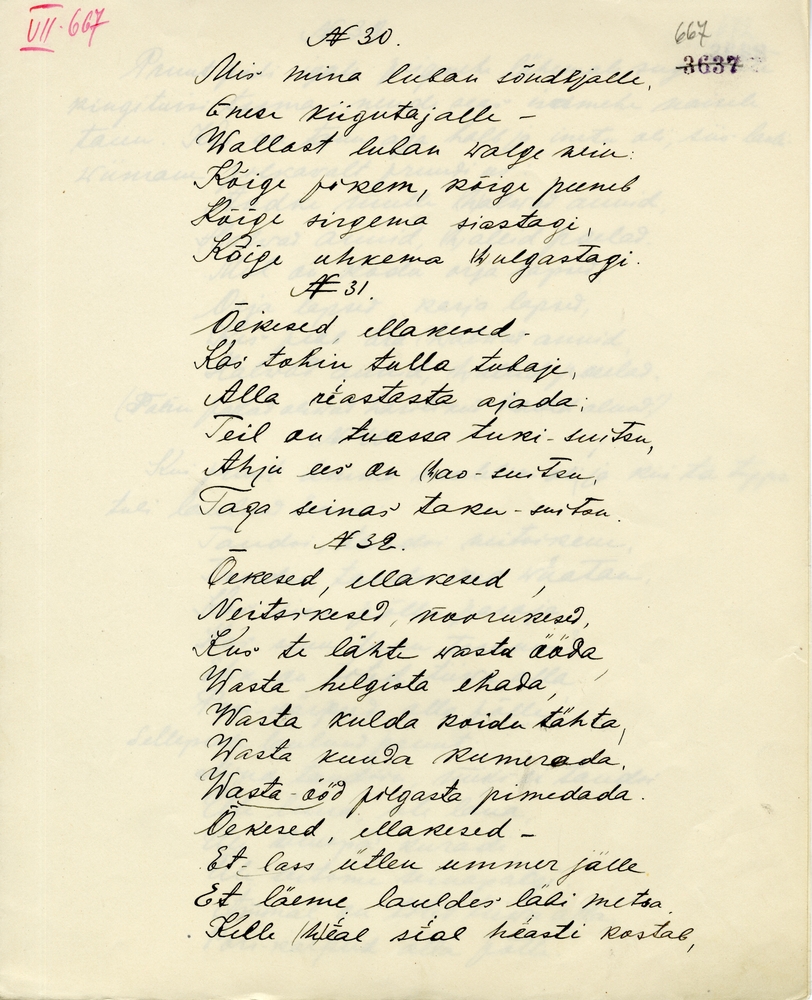 VII-667
667
3637
№ 30.
Mis mina luban sõudjalle,
Enese kiigutajalle –
Wallast luban walge neiu:
Kõige pikem, kõige peeneb
Kõige sirgema siastagi,
Kõige uhkema (h)ulgastagi.
№ 31.
Õekesed, ellakesed –
Kas tohin tulla tubaje,
Alla reastasta ajada;
Teil on tuassa tuki-suitsu,
Ahju ees on (h)ao-suitsu,
Taga seinas taku-suitsu.
№ 32.
Õekesed, ellakesed,
Neitsikesed, noorukesed,
Kus te lähte wasta ööda,
Wasta helgista ehada,
Wasta kulda koidu tähta,
Wasta kuuda kumerada,
Wasta-ööd pilgasta pimedada.
Õekesed, ellakesed –
Et-lass ütlen ummer jälle
Et läeme lauldes läbi metsa
Kelle (h)eal seal heasti kostab,